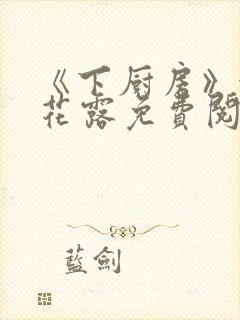 《下厨房》
花露免費閱
藍劍